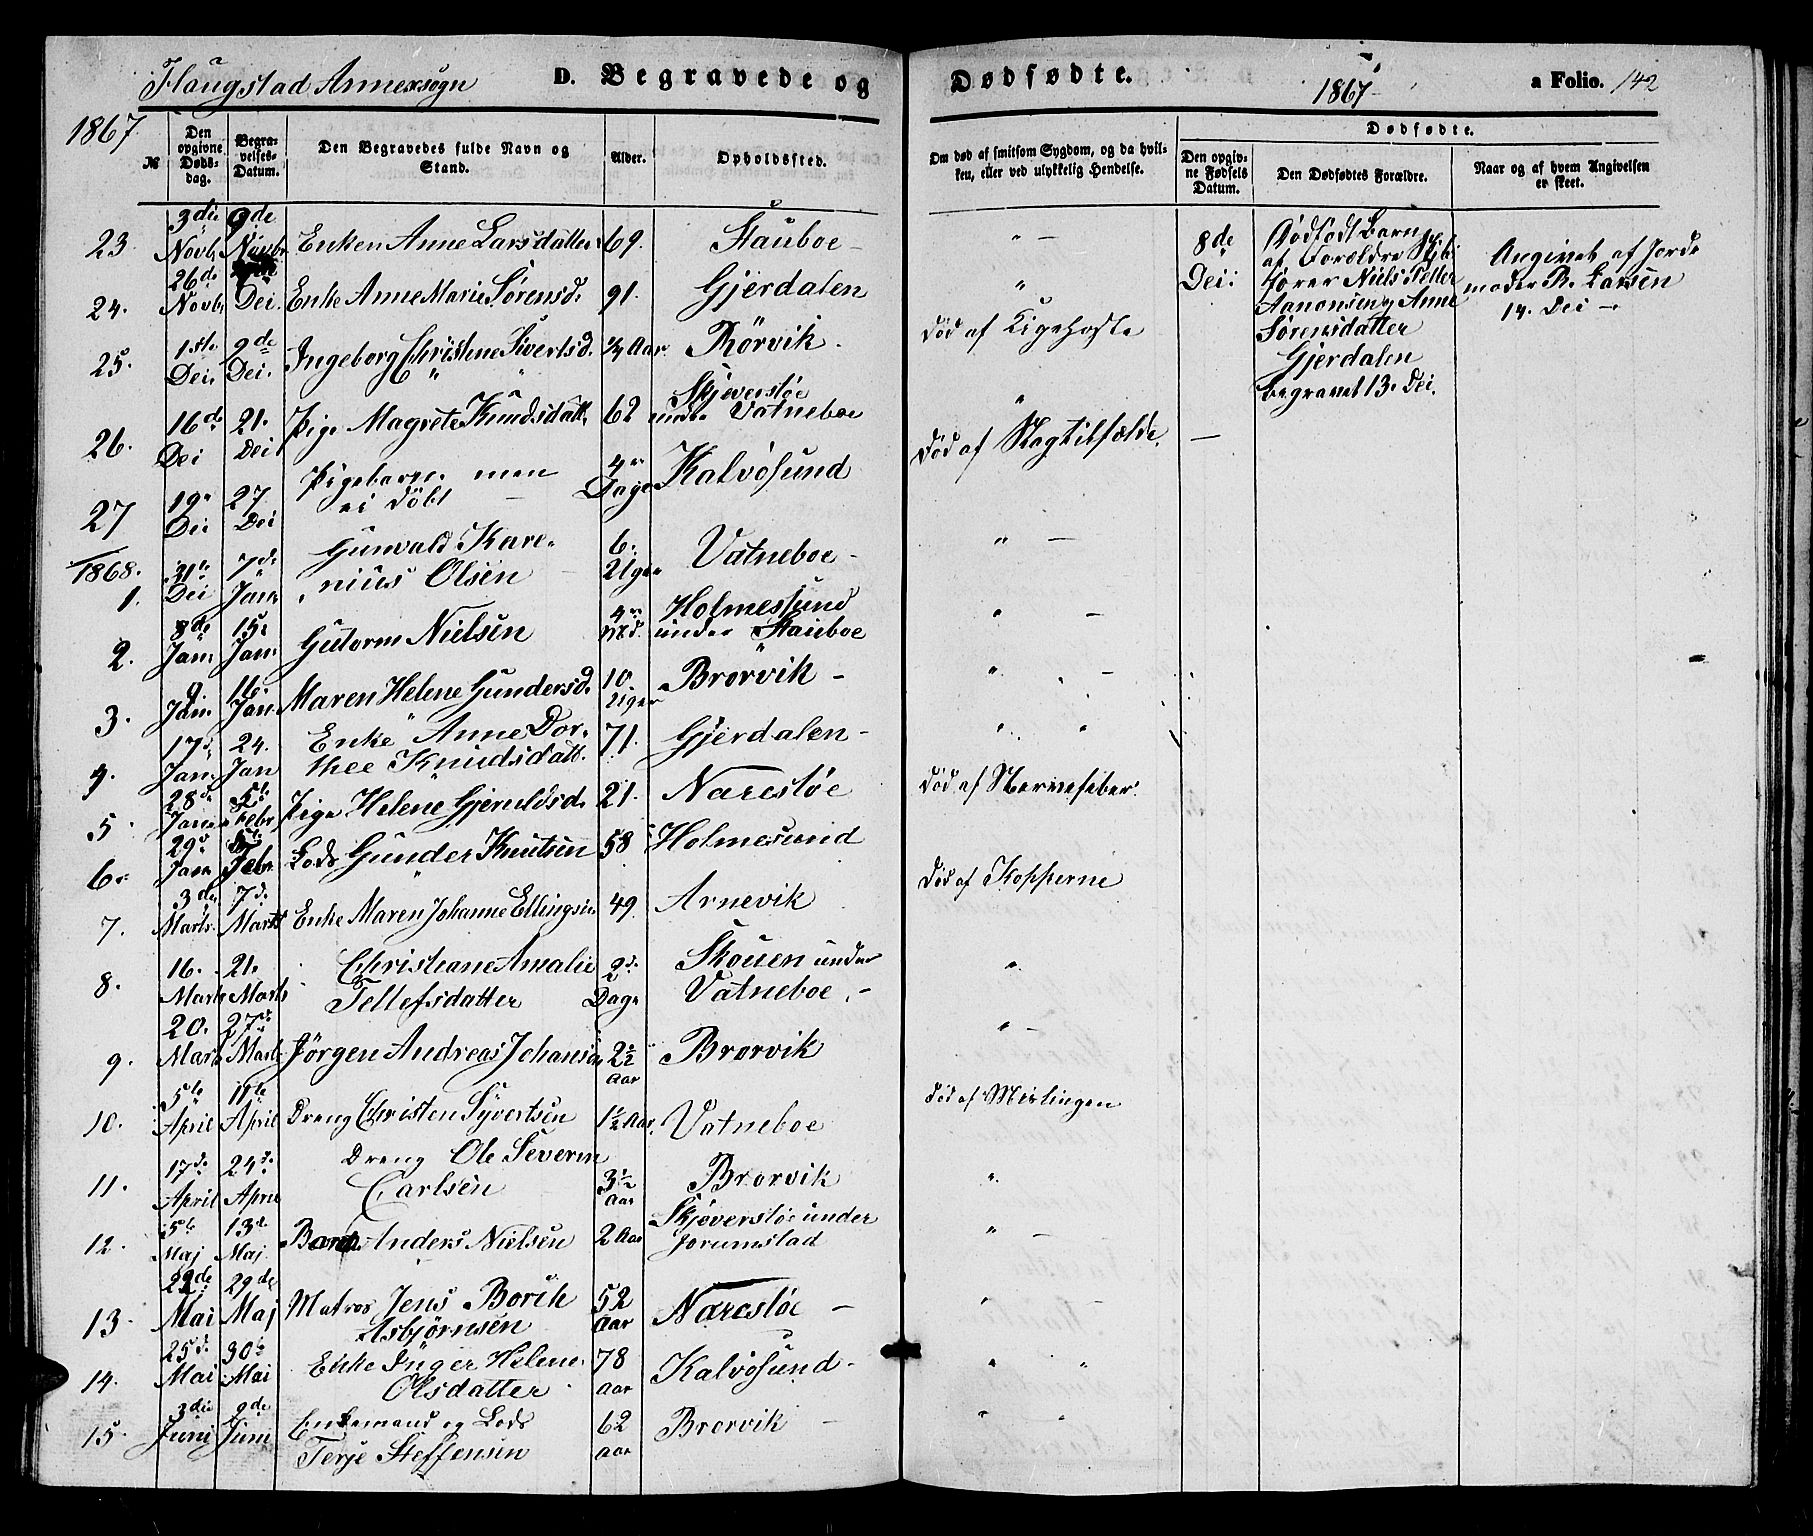 Flaugstad Annexsogn D. Begravede og Dødfødte. 1867 a Folio. 142
1867
№ Den opgivne Dødsdag. Begravelses-Datum. Den Begravedes fulde Navn og Stand. Alder. Opholdssted. Om død af smitsom Sygdom, og da hvilken, eller ved ulykkelig Hendelse. Dødfødte.
Den opgivne Fødsels Datum. Den Dødfødtes Forældre. Naar og af hvem Angivelsen er skeet.
23 3die Novb. 9de Novbr Enken Anne Larsdatter 69. Stauboe - " -
24. 26de Novb. Dei. Enke Anne Marie Sørensd. 91. Gjerdalen "
25. 1ste Dei. 9de Dei. Ingeborg Christine Sivertsd. ¾ Aar. Rörvik. Död af Kigehoste
26. 16de Dei 21. Dei Pige Magrete Knudsdatt. 62 Skjeversløe under Vatneboe "
27 19. Dei 27 Dei Pigebarn men ei döbt - 4re Dage Kalvösund Död af Slagtilfælde. -
8de Dei: Dødfödt Barn
af Forældre Skibs
förer Niels Teller
Aanonsen og Anne
Sörensdatter
Gjerdalen
begravet 13. Dei.
Angivet af Jorde
moder B. Larsen
14. Dei -
1868.
1. 31te Dei 7de Jan. Gunvald Karenius Olsen 6. Uger Vatneboe - " -
2. 8de Jan. 15. Jan. Gutorm Nielsen 4re Md. Holmessund under Stauboe " -
3. 9. Jan. 16. Jan. Maren Helene Gundersd. 10. Uger Brorvik - " -
4. 17de Jan. 24. Jan Enke Anne Dorthee Knudsdatt. 71. Gjerdalen - " "
5 28de Jan. 5te Febr Pige Helene Gjeruldsd. 21. Narestøe Död af Nervefeber.
6. 29de Jan 5te Febr. Lods Gunder Knutsen 58 Holmesund
7. 3de Marts. 7de Marts Enke Maren Johanne Ellingsen 49. Arnevik Död af Kopperne
8. 16. Marts 21. Marts Christiane Amalie Tellefsdatter 2de Dage Skouen under Vatneboe. - "
9. 20. Marts 27de Marts Jörgen Andreas Johansen 2½ Aar Brorvik " -
10. 5te April 11te April Dreng Christen Syvertsen 1½ Aar. Vatneboe Död af Meslingen
11. 17de April 24de April Dreng Ole Severin Carlsen 3½ Aar Brorvik "
12. 5te Maj 13de Maj. Barn Anders Nielsen 2 Aar Skjeversløe under Jorumstad " -
13. 22de Mai 29de Maj Matros Jens Borik Asbjørnsen 52 Aar Narestøe - " -
14. 25de Mai 30te Mai Enke Inger Helene Olsdatter 78 Aar Kalvøsund - " "
15. 3die Juni 9de Juni Enkemand og Lods Terje Steffensen 62 Aar Brorvik - " "